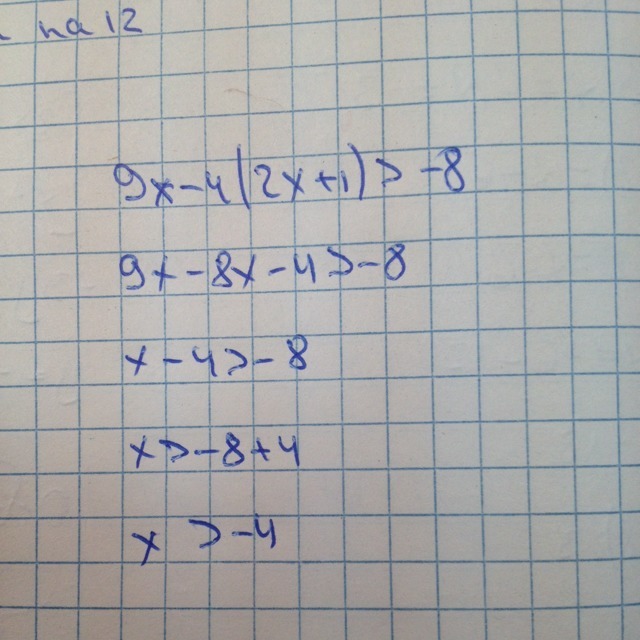 на 12
9x-4(2x+1)>-8
9x-8x-4>-8
x-4>-8
x>-8+4
x>-4